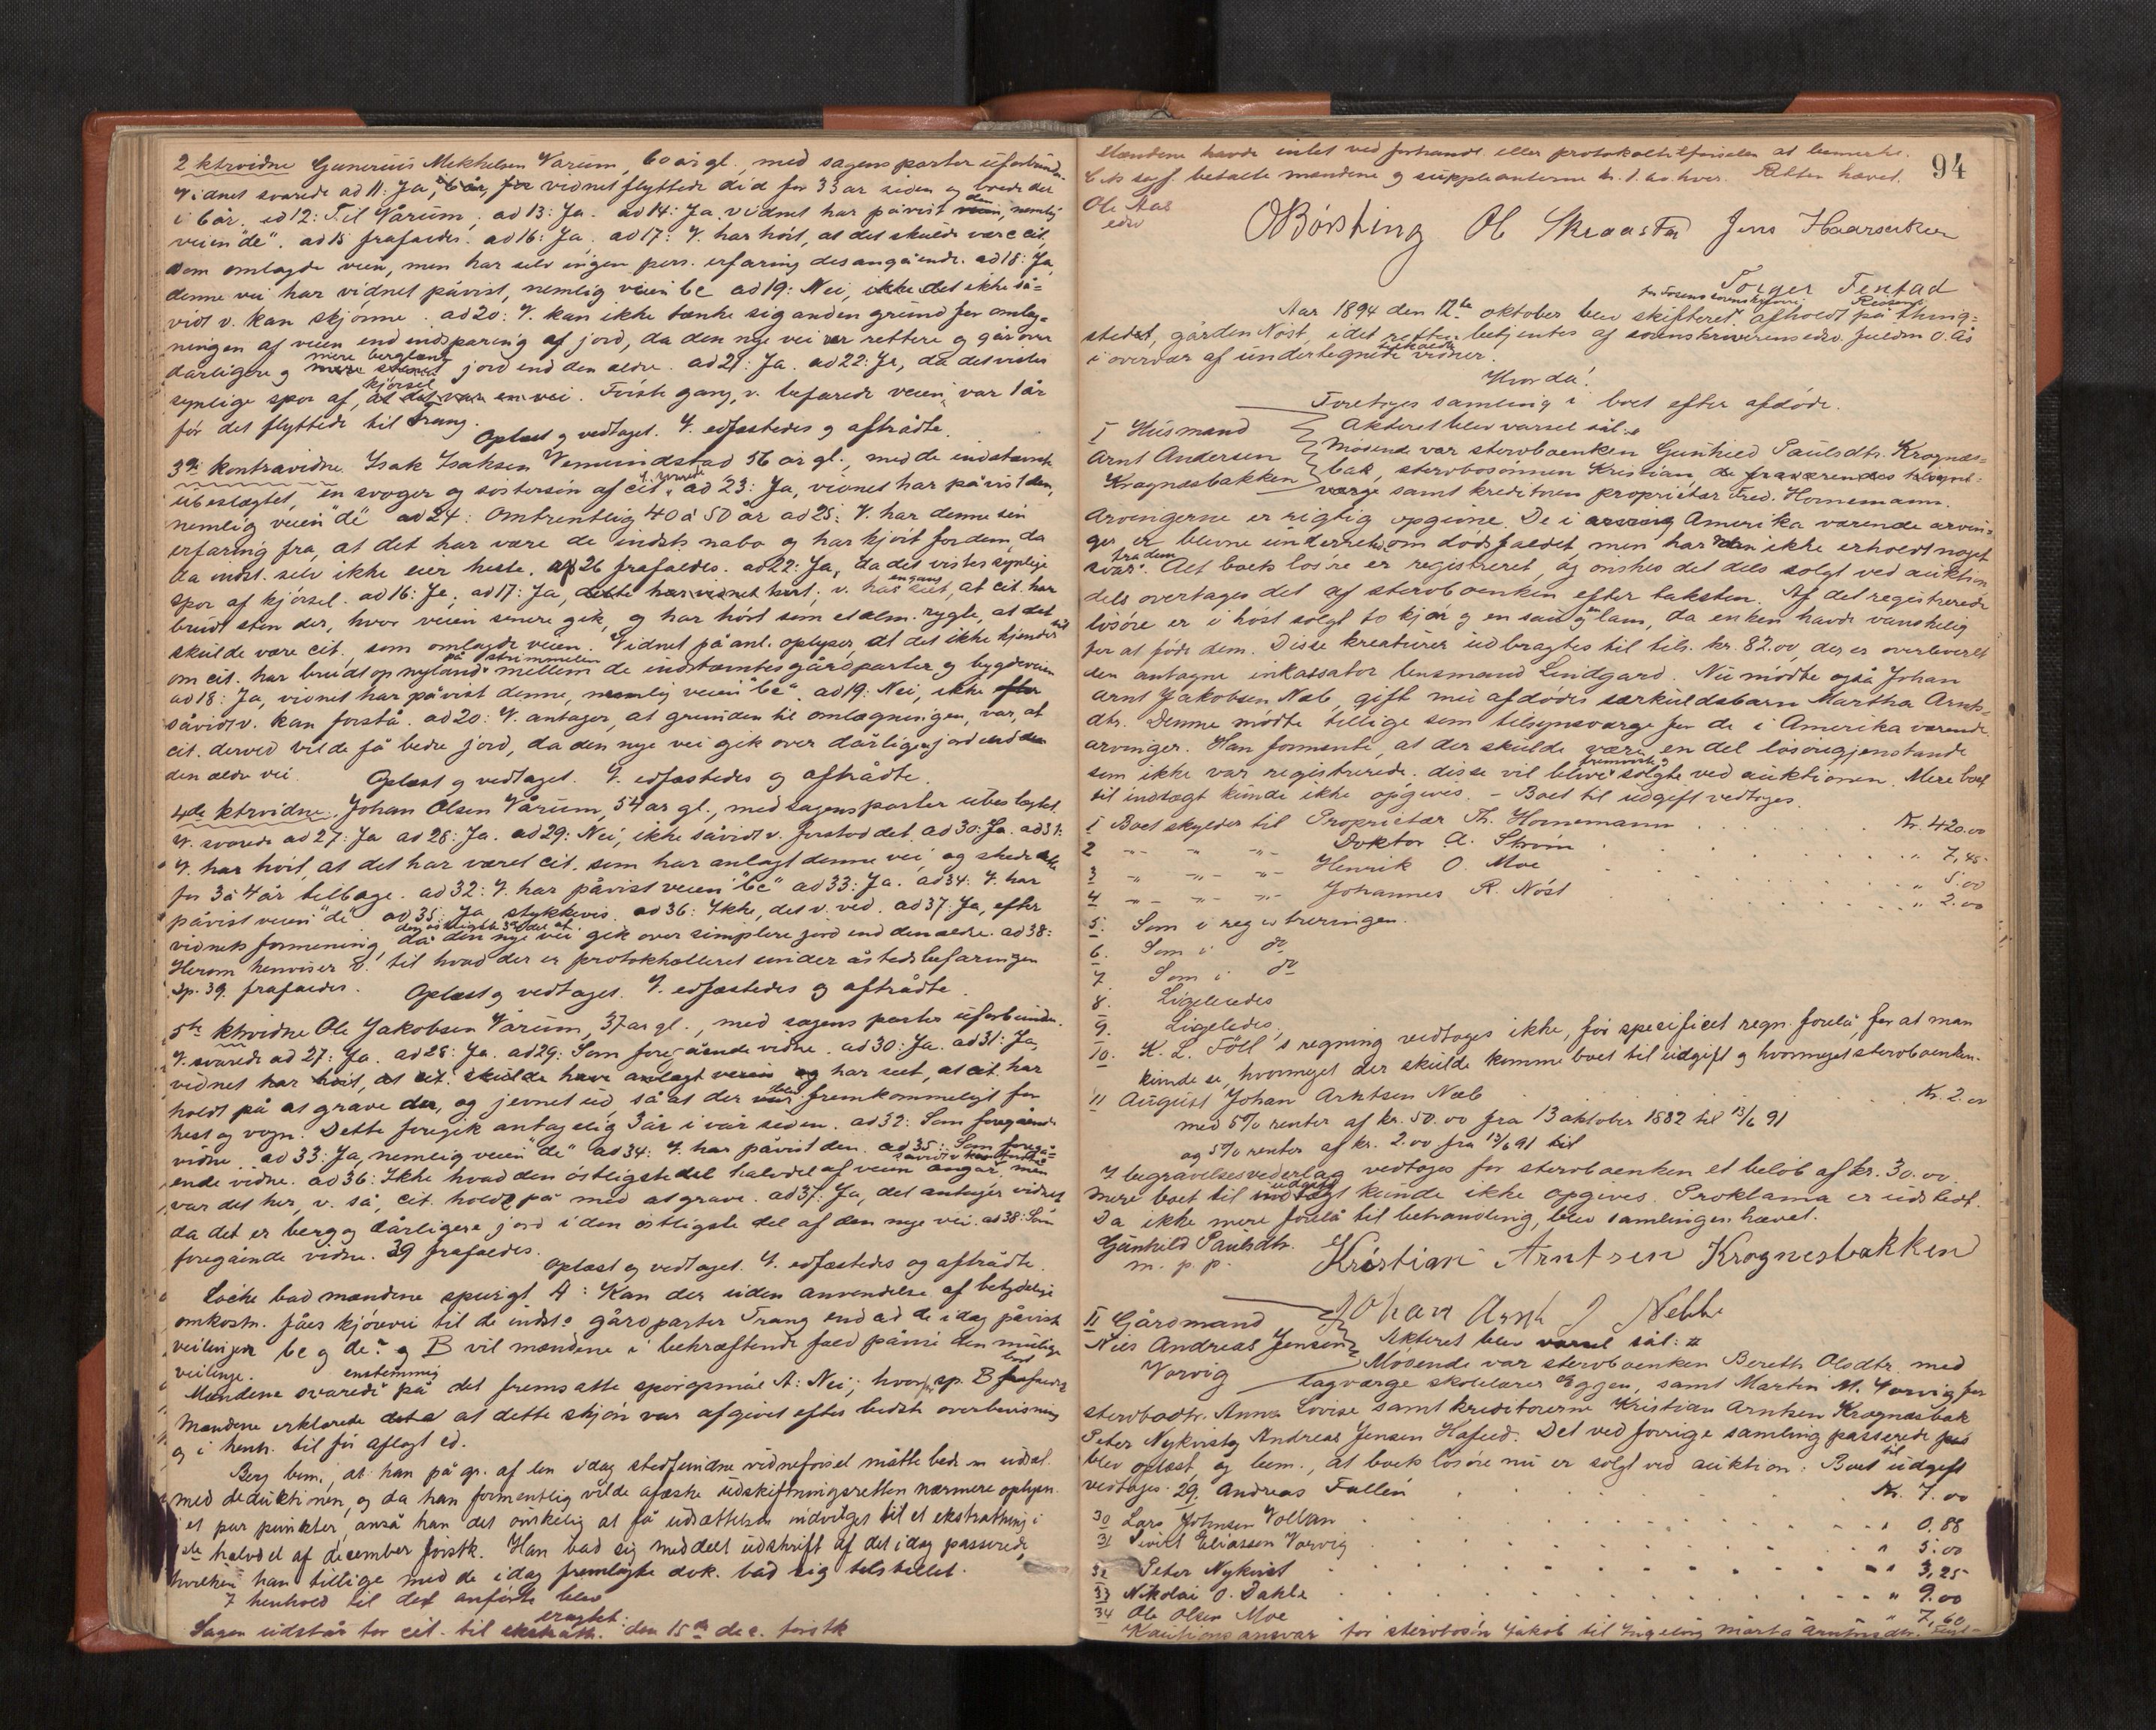 2 ktrvidne Gunerius Mekkelsen Vårum, 60 år gl., med sagens parter uforbunden
Vidnet svarede ad 11: Ja, 6 år, for vidnet flyttede did for 33 år siden og boede der
i 6 år. ad 12: Til Vårum, ad 13: Ja. ad 14: Ja, vidnet har påvist den veien, nemlig
veien "de". ad 15 frafaldes. ad 16: Ja. ad 17: V. har hört, at det skulde være cit.
som omlagde veien, men har selv ingen pers. erfaring desangående. ad 18: Ja,
denne vei har vidnet påvist, nemlig veien bc ad 19: Nei, ikke det ikke så=
vidt v. kan skjönne. ad 20: V. kan ikke tænke sig anden grund for omlæg=
ningen af veien end indsparing af jord, da den nye vei er rettere og går over
dårligere og mere berglænt jord end den ældre. ad 21: Ja. ad 22: Ja, da det vistes
synlige spor af kjörsel, at det var en vei. Förste gang, v. befarede veien, var 1 år
för det flyttede til Trang.
Oplæst og vedtaget. V. edfæstedes og aftrådte.
3die kontravidne Isak Isaksen Vemundstad 56 år gl., med de indstævnte
ubeslægtet, en svoger og söstersön af cit. ad 23: Ja, vidnet har påvist den,
nemlig veien "de" ad 24: Omtrentlig 40 à 50 år ad 25: V. har denne sin
erfaring fra, at det har være de indst. nabo og har kjört for dem, da
da indst. selv ikke eier heste. ad 26 frafaldes. ad 22: Ja, da det vistes synlige
spor af kjörsel. ad 16: Ja, ad 17: Ja, dette har vidnet hört; v. har engang seet, at cit. har
brudt sten der, hvor veien senere gik, og har hört som et alm. rygte, at det
skulde være cit., som omlagde veien. Vidnet på anl. oplyser, at det ikke kjender til
om cit. har brudt op nyland på strimmelen mellem de indstævntes gårdparter og bygdeveien
ad 18: Ja, vidnet har påvist denne, nemlig veien "bc". ad 19: Nei, ikke efter
såvidt v. kan forstå. ad 20: V. antager, at grunden til omlægningen, var, at
cit. derved vilde få bedre jord, da den nye vei gik over dårligere jord end den
den ældre vei. Oplæst og vedtaget. V. edfæstedes og aftrådte.
4de ktrvidne. Johan Olsen Vårum, 54 år gl., med sagens parter ubeslægtet.
V. svarede ad 27: Ja ad 28: Ja. ad 29: Nei, ikke såvidt v. forstod det. ad 30: Ja. ad 31:
V. har hört, at det har været cit. som har anlagt denne vei, og skede dette
for 3 à 4 år tilbage. ad 32: V. har påvist veien "bc" ad 33: Ja. ad 34: V. har
påvist veien "de" ad 35: Ja, stykkevis. ad 36: Ikke, det v. ved. ad 37: Ja, efter
vidnets formening, da den östligste del af den nye vei gik over simplere jord end den ældre. ad 38:
Herom henviser v. til hvad der er protokolleret under åstedsbefaringen
Sp. 39. frafaldes. Oplæst og vedtaget. V. edfæstedes og aftrådte.
5te ktrvidne Ole Jakobsen Vårum, 37 år gl., med sagens parter uforbunden.
V. svarede ad 27: Ja. ad 28: Ja. ad 29: Som foregående vidne. ad 30: Ja. ad 31: Ja,
vidnet har hört, at cit. skulde have anlagt veien og har seet, at cit. har
holdt på at grave der, og jevnet ud så at der blev fremkommeligt for
hest og vogn. Dette foregik antagelig 3 år i vår siden. ad 32: Som foregående
vidne. ad 33: Ja, nemlig veien "de" ad 34: V. har påvist den. ad 35: Som foregå=
ende vidne. ad 36: Ikke hvad den östligste del halvdel af veien angår, men
var det her, v. så, cit. holdt på med at grave. ad 37: Ja, det antager vidnet,
da det er berg og dårligere jord i den östligste del af den nye vei. ad 38: Som
foregående vidne. 39 frafaldes.
Oplæst og vedtaget. V. edfæstedes og aftrådte.
Löcke bad mændene spurgt A: Kan der uden anvendelse af betydelige
omkostn. fåes kjörevei til de indst.s gårdparter Trang end ad de idag påviste
veilinjer bc og de? og B vil mændene i bekræftende fald påvise den mulige
veilinje.
Mændene svarede enstemmig på det fremsatte spörgsmål A: Nei; hvorfor sp. B bort frafaldt
Mændene erklærede at dette skjön var afgivet efter bedste overbevisning
og i henh. til för aflagt ed.
Berg bem., at han på gr. af den idag stedfundne vidneförsel måtte bede om udsæt.
med deduktionen, og da han formentlig vilde afæske udskiftningsretten nærmere oplysn.
i et par punkter, anså han det önskelig at få udsættelse indvilget til et ekstrathing i
1ste halvdel af december förstk. Han bad sig meddelt udskrift af det idag passerede,
hvilken han tillige med de idag fremlagte dok. bad sig tilstillet.
I henhold til det anförte blev
eragtet:
Sagen udstår for cit. til ekstrath. den 15de dec. förstk
94
Mændene havde intet ved forhandl. eller protokoltilförselen at bemerke.
Cits sagf. betalte mændene og suppleanterne kr. 1.60 hver. Retten hævet.
Ole Aas
edsv
O Börsting Ol Skraastad Jens Haarsaker
Torger Fenstad
Aar 1894 den 12te oktober blev skifteret for Fosens sorenskriveri afholdt på thing=
stedet, gården Nöst, idet retten betjentes af sorenskriverens edsv. fuldm O. Ås
i overvær af undertegnede tilkaldte vidner.
Hvorda!
Foretoges samling i boet efter afdöde.
I Husmand
Arnt Andersen
Krognæsbakken
Akteret blev varsel sål:
Mödende var stervboenken Gunhild Paulsdtr. Krognæs=
bak, stervbosönnen Kristian, de fraværendes tilsyns=
værge samt kreditoren proprietær Fred. Hornemann.
Arvingerne er rigtig opgivne. De i Amerika værende arvin=
ger er blevne underrettede om dödsfaldet, men har ikke erholdt noget
svar fra dem. Alt boets lösöre er registreret, og önskes det dels solgt ved auktion
dels overtages det af stervboenken efter taksten. Af det registrerede
lösöre er i höst solgt to kjör og en sau og en lam, da enken havde vanskelig
for at föde dem. Disse kreaturer udbragtes til tils. kr. 82.00, der er overleveret
den antagne inkassator lensmand Lindgard. Nu mödte også Johan
Arnt Jakobsen Næb, gift med afdödes særkuldsbarn Martha Arnts=
dtr. Denne mödte tillige som tilsynsværge for de i Amerika værende
arvinger. Han formente, at der skulde være en del lösöregjenstande
som ikke var registrerede. disse vil blive fremvist og solgte ved auktionen. Mere boet
til indtægt kunde ikke opgives. - Boet til udgift vedtoges.
1 Boet skylder til Proprietær Fr. Hornemann . . . Kr. 420.00
2 -"- " -"- Doktor A. Ström . . . " 7,45
3 -"- " -"- Henrik O. Moe . . . " 5.00
4 -"- " -"- Johannes R. Nöst . . . " 2.00
5. Som i registreringen.
6. Som i do
7 Som i do
8. Ligeledes
9. Ligeledes,
10. K. L. Föll's regning vedtoges ikke, för spesificet regn. forelå, for at man
kunde se, hvormeget der skulde komme boet til udgift og hvormeget stervboenken.
11 August Johan Arntsen Næb . . . Kr. 2.00
med 5% renter af kr. 50.00 fra 13 oktober 1882 til 13/6 91
og 5% renter af kr. 2.00 fra 13/6 91 til
I begravelsesvederlag vedtoges for stervboenken et belöb af kr. 30.00.
Mere boet til udgift kunde ikke opgives. Proklama er udstedt.
Da ikke mere forelå til behandling, blev samlingen hævet.
Gunhild Paulsdtr.
m. p. p.
Kristian Arntsen Krognesbakken
Johan Arnt J Nebbe
II Gårdmand
Nils Andreas Jensen
Vorvig
Akteret blev varsel sål: #
Mödende var stervboenken Bereth Olsdtr. med
lagværge skolelærer Eggen, samt Martin M. Vorvig for
stervbodtr. Anna Lovise samt kreditorerne Kristian Arntsen Krognæsbak
Peter Nykvist og Andreas Jensen Hafeld. Det ved forrige samling passerede
blev oplæst, og bem., at boets lösöre nu er solgt ved auktion: Boet til udgift
vedtoges. 29. Andreas Fallin . . . Kr. 7.00
30 Lars Johnsen Vollan . . . " 0.88
31 Sivert Eliassen Vorvig . . . " 5.00
32 Peter Nykvist . . . " 3,25
33 Nikolai O. Dahle . . . " 9.00
34 Ole Olsen Moe . . . " 7,60
Kautionsansvar for stervbosön Jakob til Ingeborg Marta Arntsdtr.